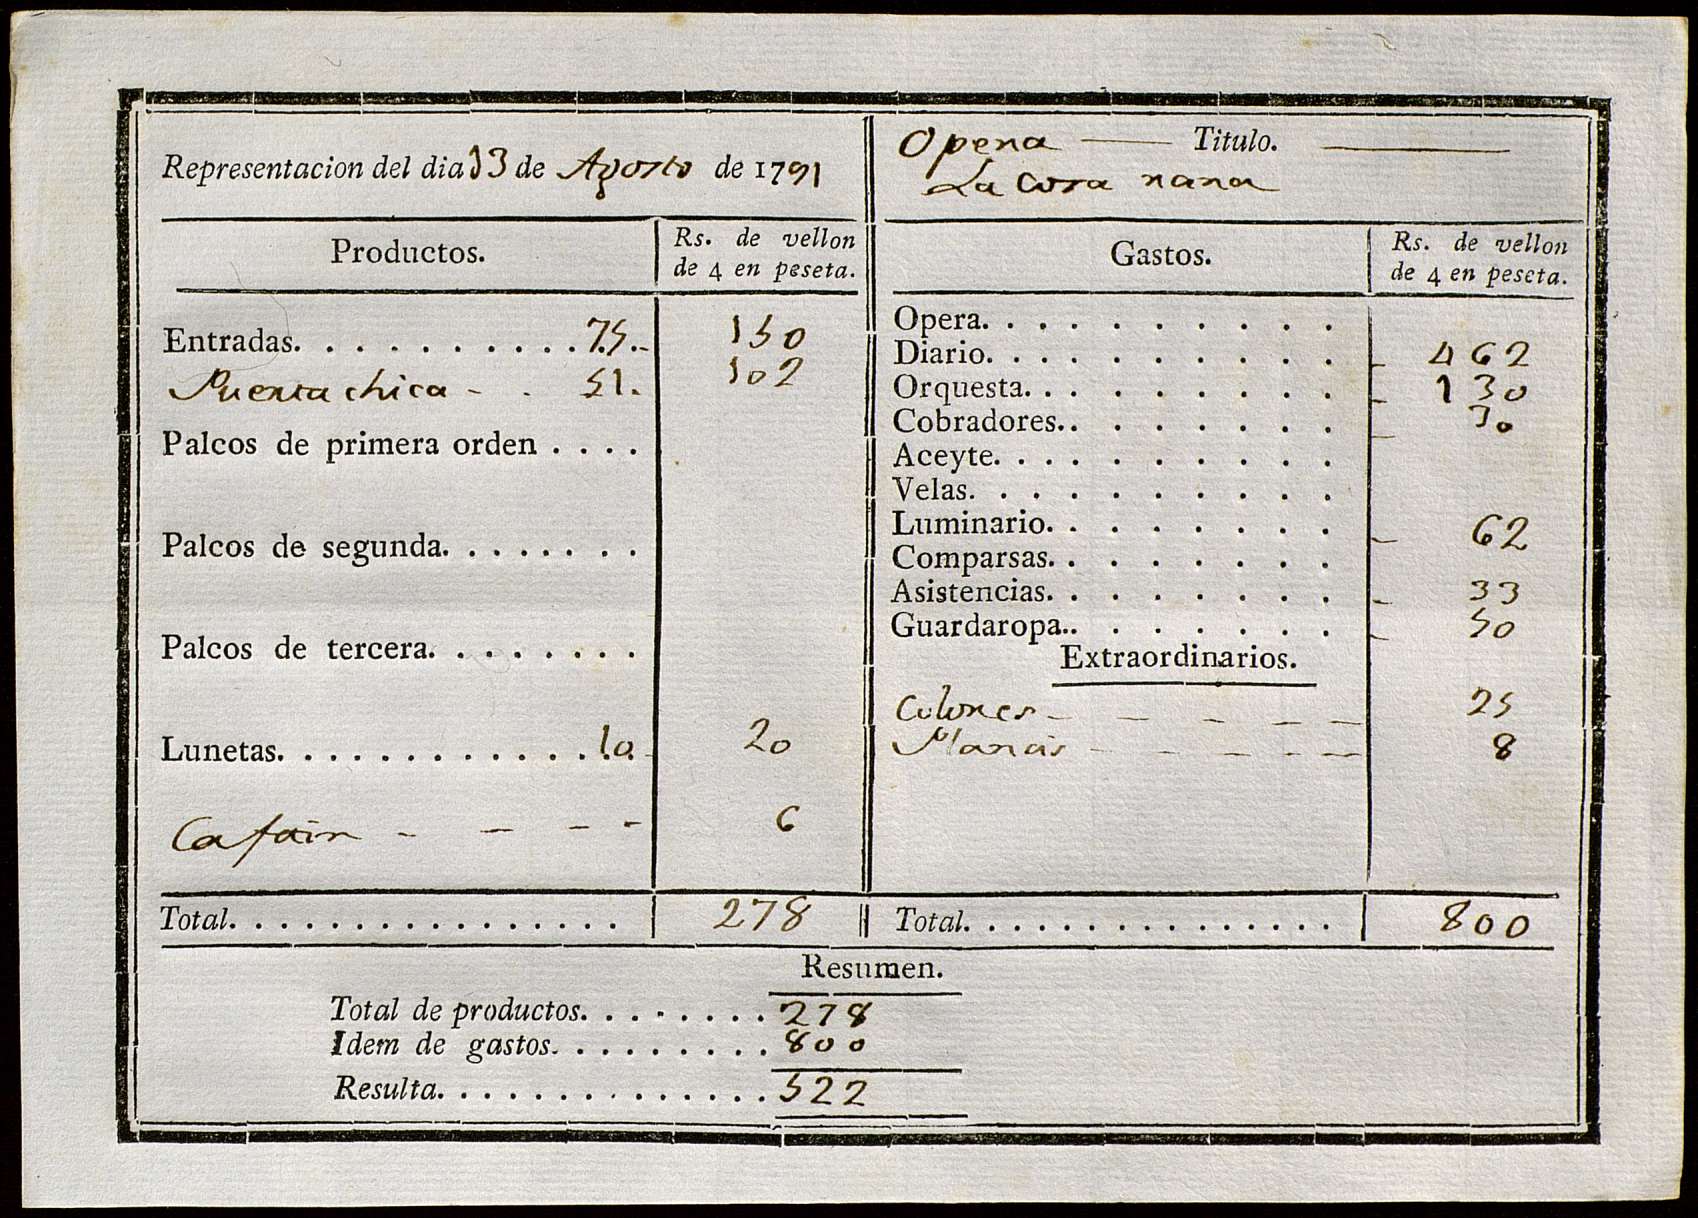 Representacion del dia 13 de Agosto de 1791
Opera Titulo.
La cosa rara
Productos. Rs. de vellon de 4 en peseta.
Entradas. . . . . . . . . . . 75. 150
Puerta chica 51. 102
Palcos de primera orden . . . .
Palcos de segunda. . . . . . . .
Palcos de tercera. . . . . . . .
Lunetas. . . . . . . . . . . . 10. 20
6
Total. . . . . . . . . . . . . . . . 278
Gastos. Rs. de vellon de 4 en peseta.
Opera. . . . . . . . . .
Diario. . . . . . . . . . 462
Orquesta. . . . . . . . . 130
Cobradores. . . . . . . . 30
Aceyte. . . . . . . . . .
Velas. . . . . . . . . .
Luminario. . . . . . . . 62
Comparsas. . . . . . . .
Asistencias. . . . . . . . 33
Guardaropa. . . . . . . . 50
Extraordinarios.
Colores 25
8
Total. . . . . . . . . . . . . . . . 800
Resumen.
Total de productos. . . . . . . . 278
Idem de gastos. . . . . . . . . 800
Resulta. . . . . . . . . . . . . . 522